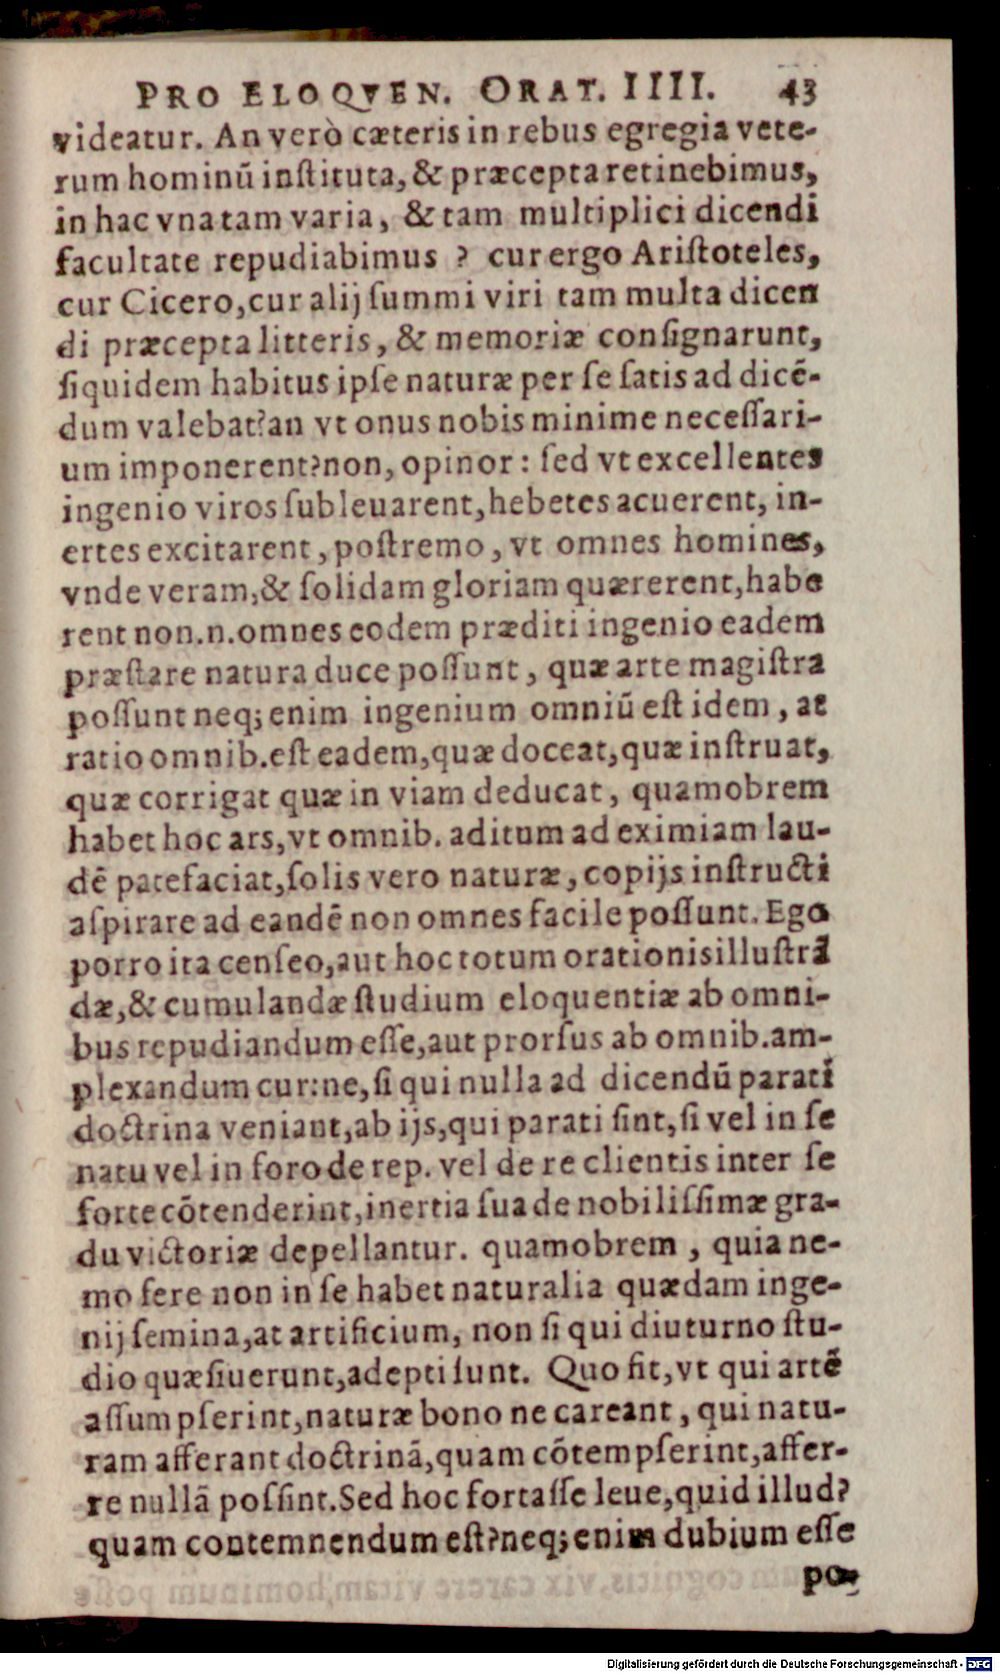 PRO ELOQVEN. ORAT. IIII. 43
videatur. An verò cæteris in rebus egregia vete-
rum hominū inſtituta, & præcepta retinebimus,
in hac vna tam varia, & tam multiplici dicendi
facultate repudiabimus ? cur ergo Ariſtoteles,
cur Cicero, cur alij ſummi viri tam multa dicen
di præcepta litteris, & memoriæ conſignarunt,
ſiquidem habitus ipſe naturæ per ſe ſatis ad dicē-
dum valebat? an vt onus nobis minime neceſſari-
um imponerent? non, opinor: ſed vt excellentes
ingenio viros ſubleuarent, hebetes acuerent, in-
ertes excitarent, poſtremo, vt omnes homines,
vnde veram, & ſolidam gloriam quærerent, habe
rent non.n.omnes eodem præditi ingenio eadem
præſtare natura duce poſſunt, quæ arte magiſtra
poſſunt neq; enim ingenium omniū eſt idem, at
ratio omnib. eſt eadem, quæ doceat, quæ inſtruat,
quæ corrigat quæ in viam deducat, quamobrem
habet hoc ars, vt omnib. aditum ad eximiam lau-
dē patefaciat, ſolis vero naturæ, copijs inſtructi
aſpirare ad eandē non omnes facile poſſunt. Ego
porro ita cenſeo, aut hoc totum orationis illuſtrā
dæ, & cumulandæ ſtudium eloquentiæ ab omni-
bus repudiandum eſſe, aut prorſus ab omnib. am-
plexandum cur: ne, ſi qui nulla ad dicendū parati
doctrina veniant, ab ijs, qui parati ſint, ſi vel in ſe
natu vel in foro de rep. vel de re clientis inter ſe
forte cōtenderint, inertia ſua de nobiliſſimæ gra-
du victoriæ depellantur. quamobrem, quia ne-
mo fere non in ſe habet naturalia quædam inge-
nij ſemina, at artificium, non ſi qui diuturno ſtu-
dio quæſiuerunt, adepti ſunt. Quo fit, vt qui artē
aſſumpſerint, naturæ bono ne careant, qui natu-
ram afferant doctrinā, quam cōtempſerint, affer-
re nullā poſſint. Sed hoc fortaſſe leue, quid illud?
quam contemnendum eſt? neq; enim dubium eſſe
po-
Digitalisierung gefördert durch die Deutsche Forschungsgemeinschaft - DFG